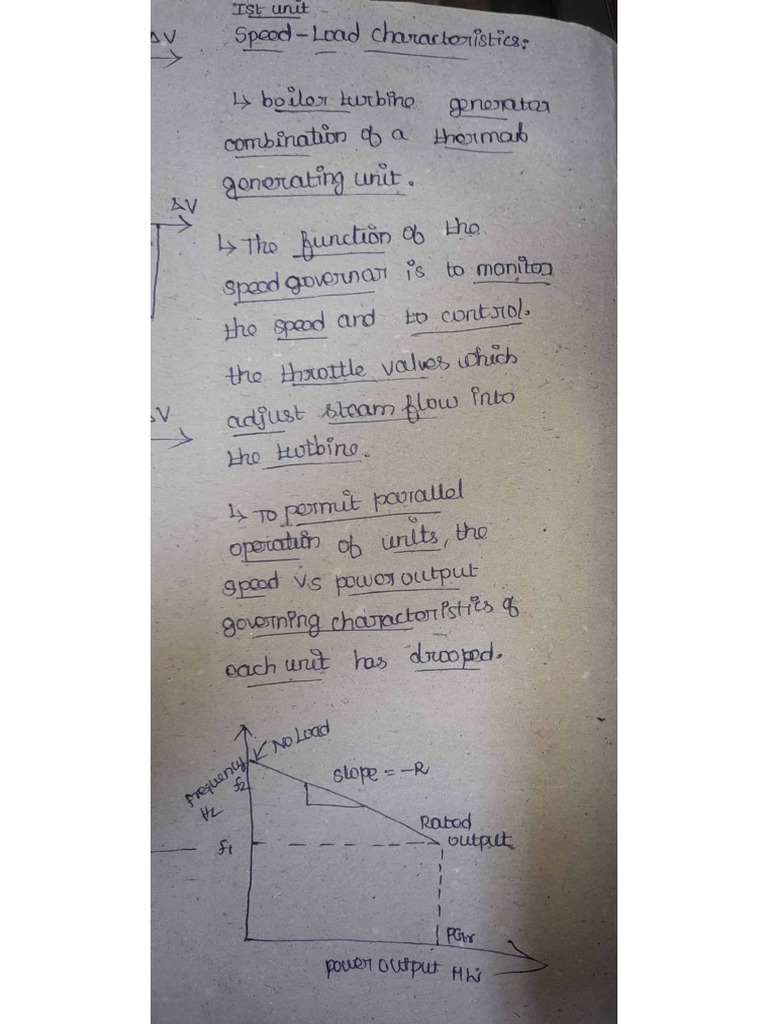 Ist unit
Speed-Load characteristics:
ΔV
↳ boiler turbine generator
combination of a thermal
generating unit.
ΔV
↳ The function of the
speed governar is to monitor
the speed and to control.
the throttle valves which
ΔV
adjust steam flow into
the turbine.
↳ To permit parallel
operation of units, the
speed vs power output
governing characteristics of
each unit has drooped.
No Load
Frequency
Hz
f2
slope = -R
Rated
output
f1
PGr
power output MW